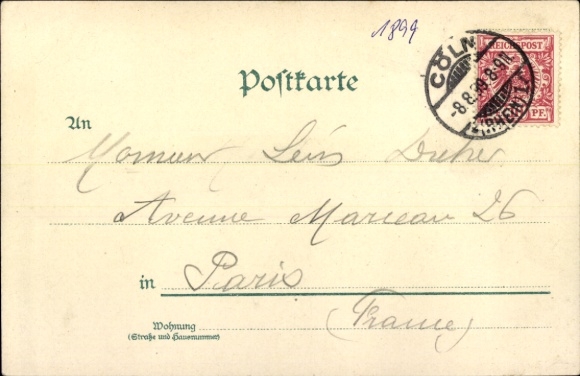 1899
CÖLN
8.8.99.8-9N.
(RHEIN)
REICHSPOST
PF
Postkarte
An
Monsieur Léis
Avenue Marceau 26
in Paris
(France)
Wohnung
(Straße und Hausnummer)